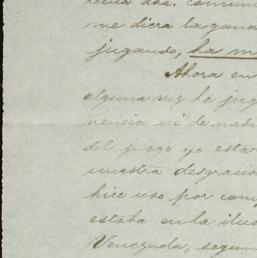 me diera la gana
jugando, ha m
Ahora en
alguna vez ha jug
nencia ni de nadi
del juego yo estar
nuestra desgracia
hice uso por com
estaba en la ilus
Venezuela, segun